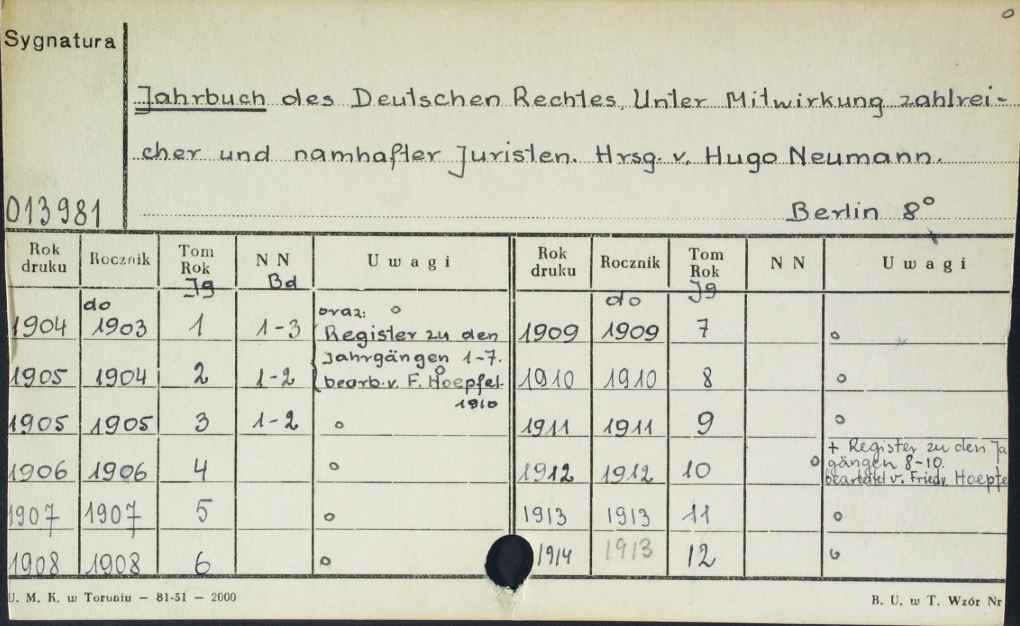 Sygnatura
Jahrbuch des Deutschen Rechtes. Unter Mitwirkung zahlrei-
cher und namhafter Juristen. Hrsg. v. Hugo Neumann.
013981
Berlin 8°
Rok druku Rocznik Tom Rok Jg NN Bd Uwagi Rok druku Rocznik Tom Rok Jg NN Uwagi
1904 do 1903 1 1-3 oraz: o 1909 do 1909 7 o
Register zu den
Jahrgängen 1-7.
1905 1904 2 1-2 bearb. v. F. Hoepfel 1910 1910 8 o
1910
1905 1905 3 1-2 o 1911 1911 9 o
1906 1906 4 o 1912 1912 10 o + Register zu den Ja
gängen 8-10.
v. Friedr. Hoepfe
1907 1907 5 o 1913 1913 11 o
1908 1908 6 o 1914 1913 12 o
U. M. K. w Toruniu — 81-51 — 2000
B. U. w T. Wzór Nr